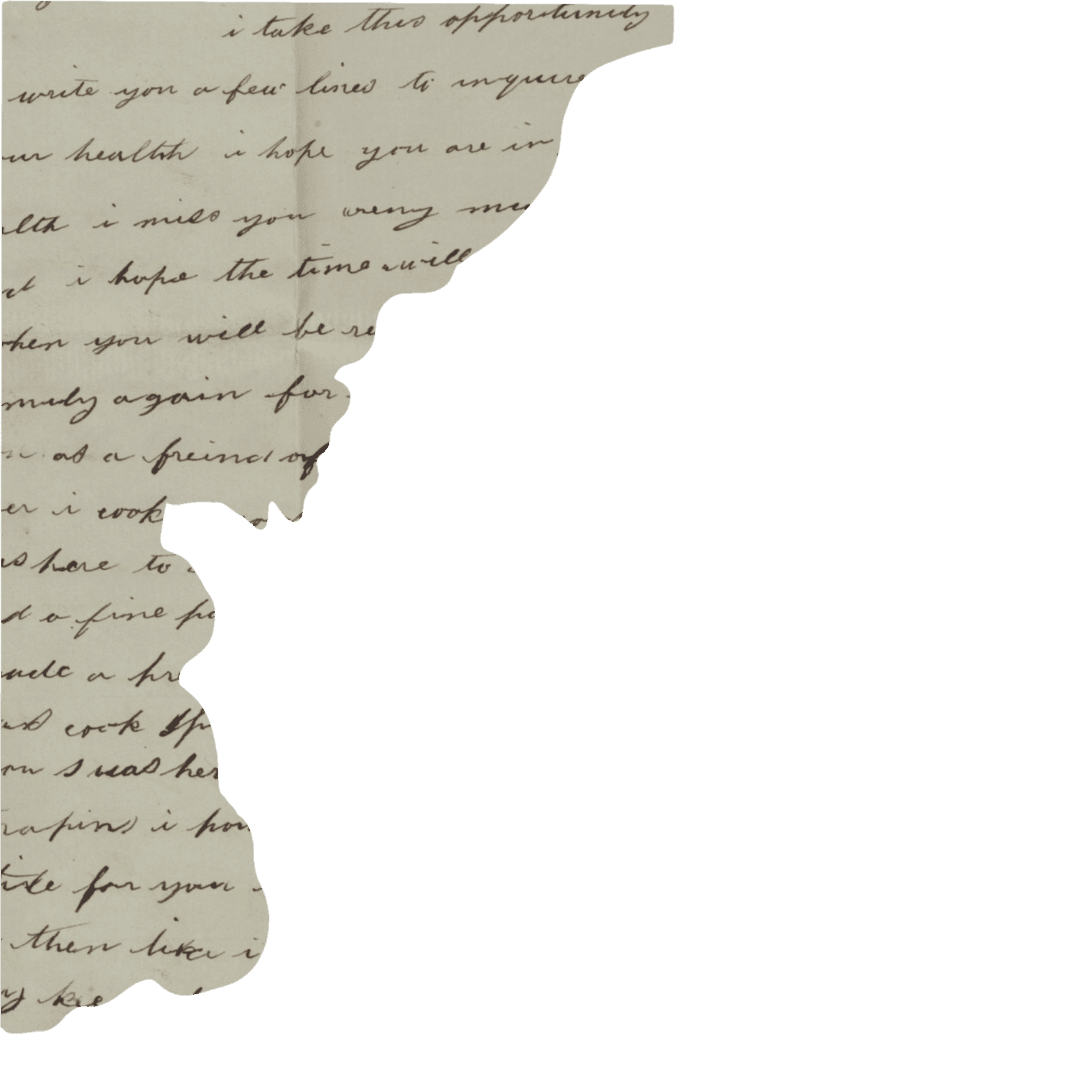 i take this opportunity
write you a few lines to inquire
ur health i hope you are in
alth i miss you wreny mu
i hope the time will
when you will be re
mily again for
as a freind of
er i cook
as here to
d a fine po
ade a pr
as cook
s was her
rapins i pou
tide for your
then like i